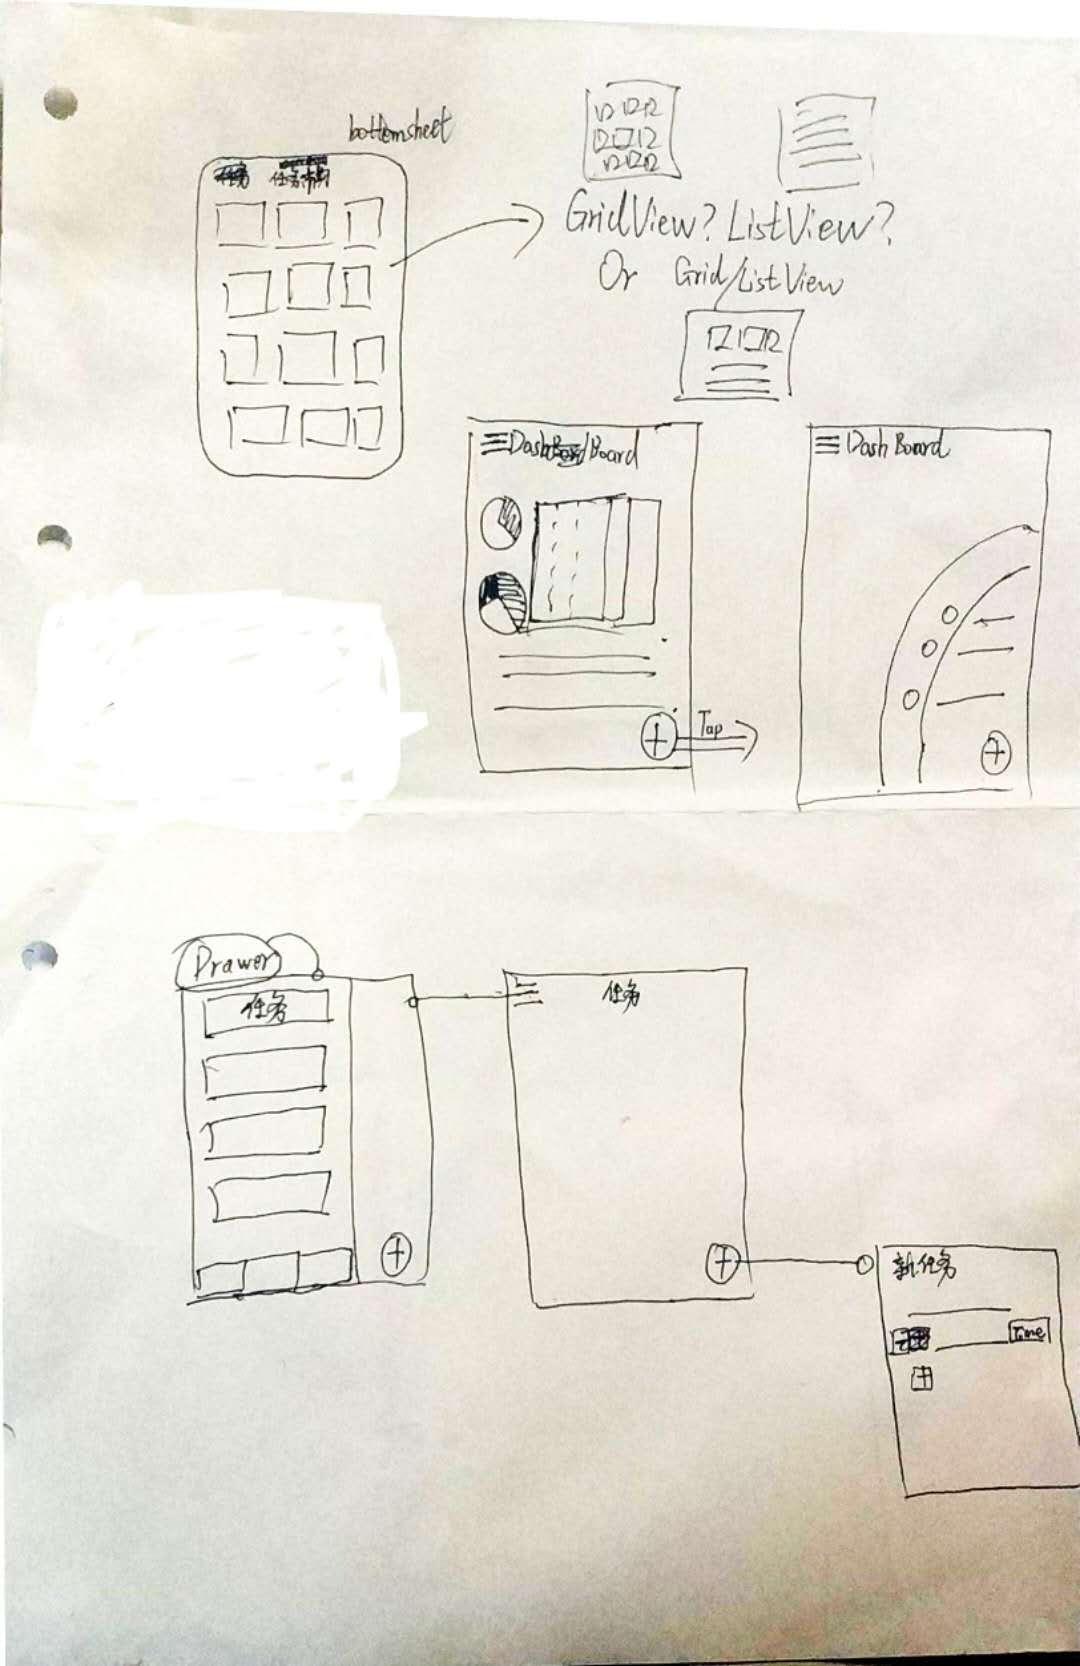 bottomsheet
任务
GridView? ListView?
Or Grid/ListView
DashBoard
Dash Board
Tap
Drawer
任务
任务
新任务
Time